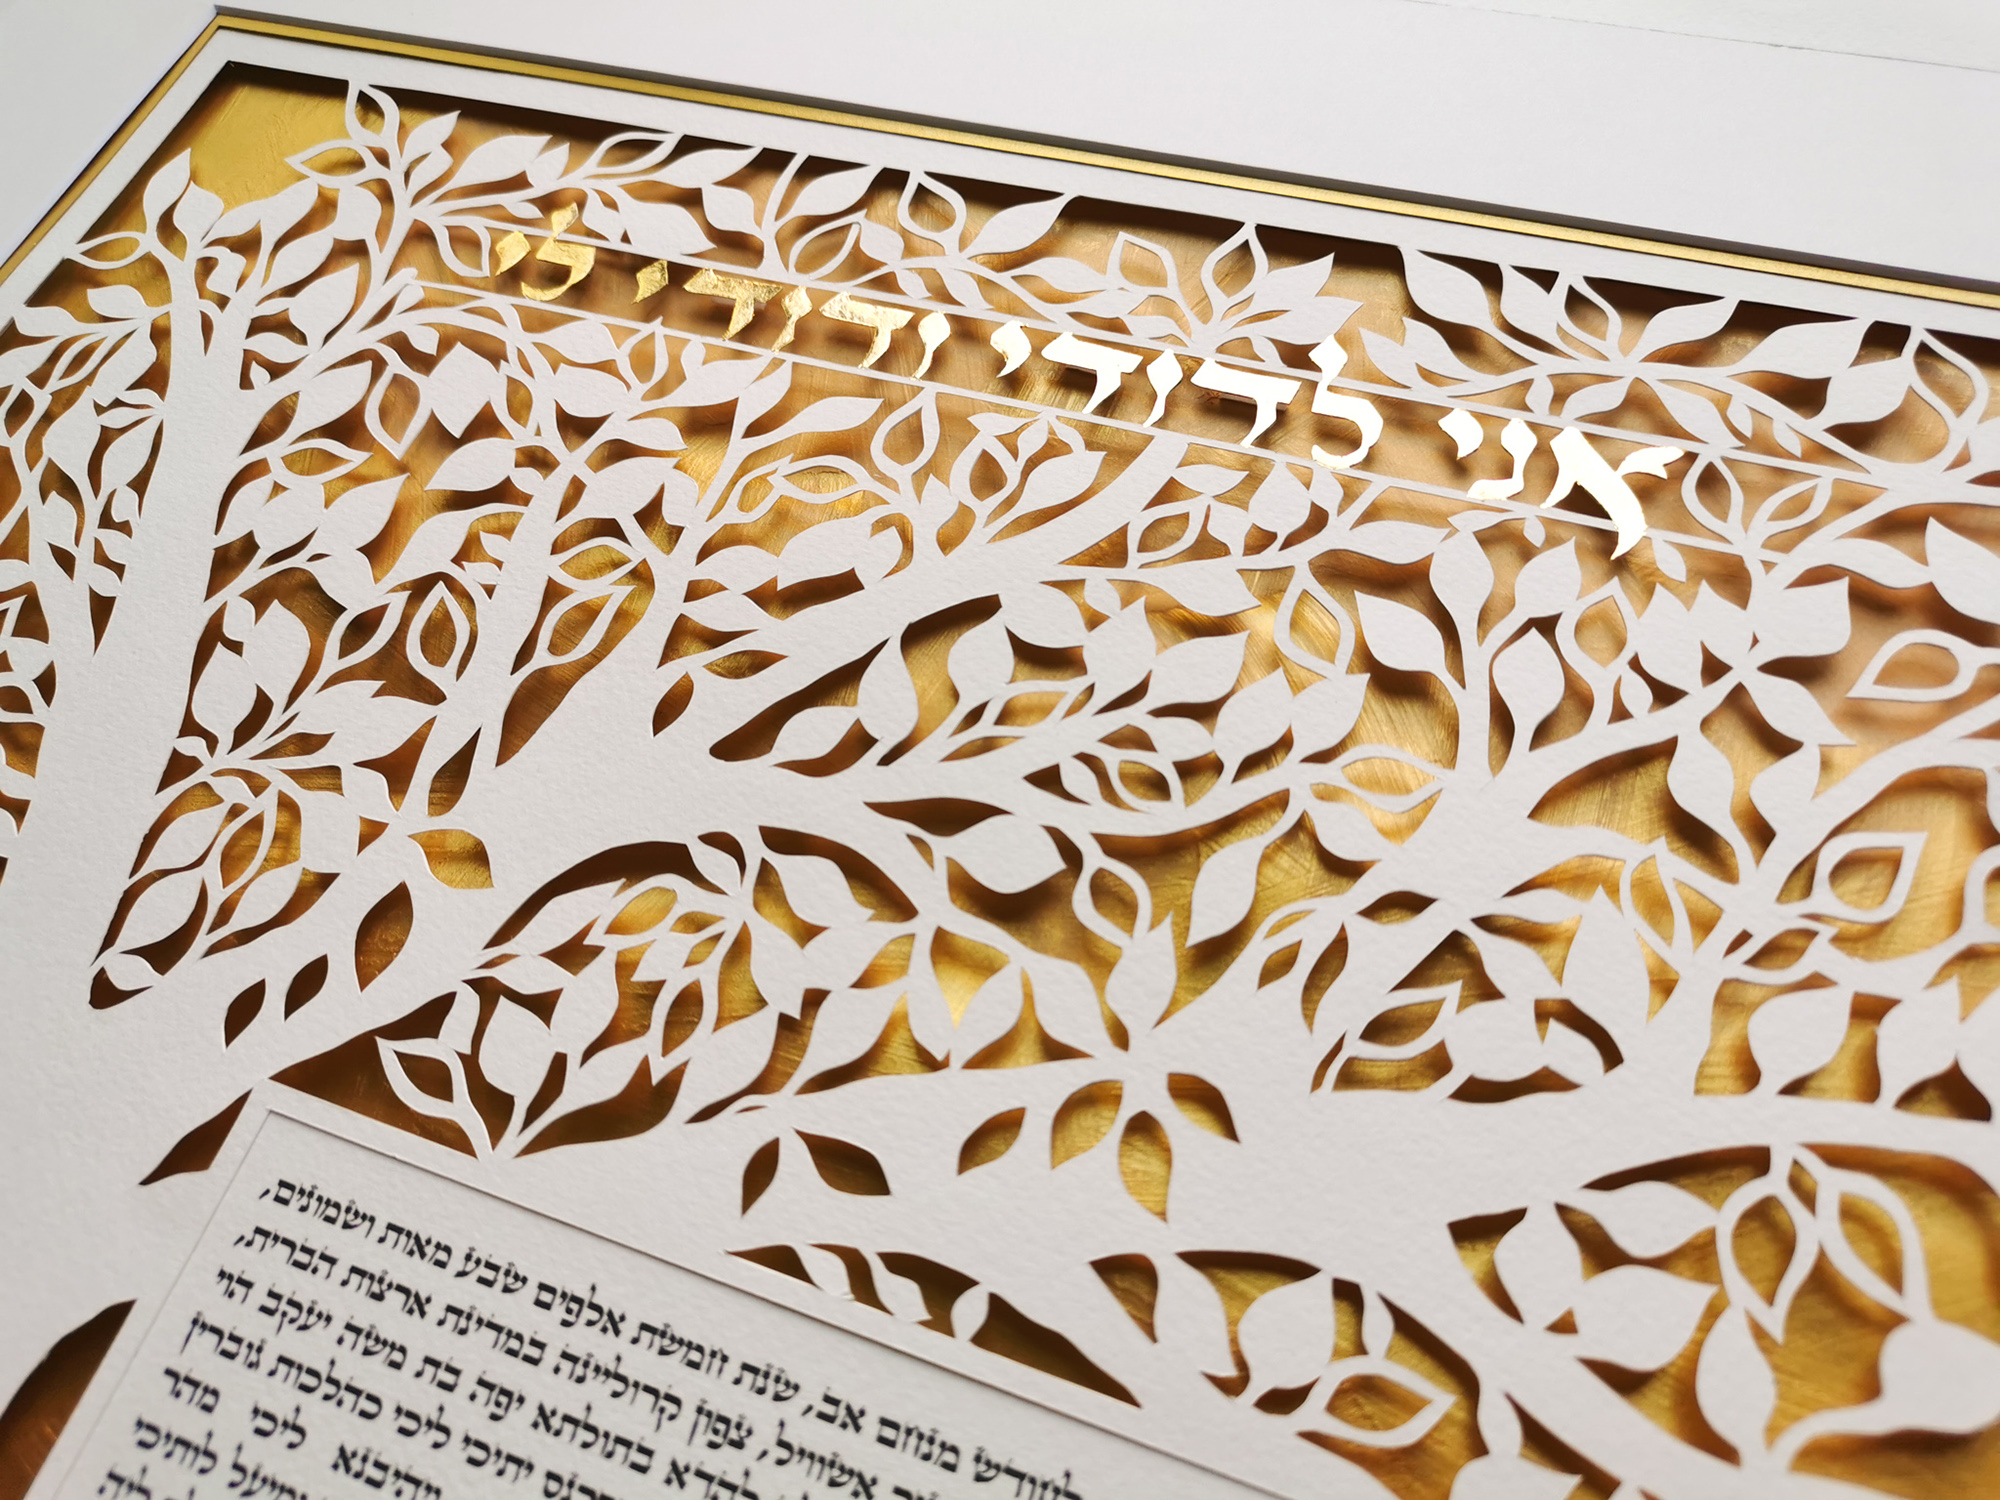 אני לדודי ודודי לי
לחודש מנחם אב, שנת חמשת אלפים שבע מאות ושמונים,
אשוויל, צפון קרוליינה במדינת ארצות הברית,
להדא בתולתא יפה בת משה יעקב הוי
יתיכי ליכי כהלכות גוברין
ויהיבנא ליכי מהר
ומיעל לותיכי